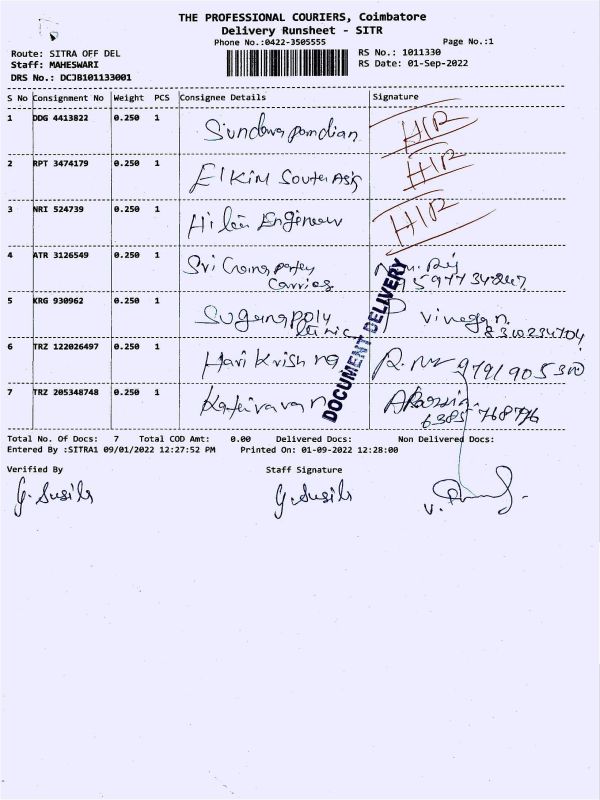 THE PROFESSIONAL COURIERS, Coimbatore
Delivery Runsheet - SITR
Phone No.:0422-3505555 Page No.:1
Route: SITRA OFF DEL RS No.: 1011330
Staff: MAHESWARI RS Date: 01-Sep-2022
DRS No.: DCJB101133001
S No Consignment No Weight PCS Consignee Details Signature
1 DDG 4413822 0.250 1 Sundarapandian HIR
2 RPT 3474179 0.250 1 HIR
3 NRI 524739 0.250 1 HIR
4 ATR 3126549 0.250 1 Sri
5 KRG 930962 0.250 1
6 TRZ 122026497 0.250 1 Hari Krishna 9791905300
7 TRZ 205348748 0.250 1 Kateiravan
DOCUMENT DELIVERY
Total No. Of Docs: 7 Total COD Amt: 0.00 Delivered Docs: Non Delivered Docs:
Entered By :SITRA1 09/01/2022 12:27:52 PM Printed On: 01-09-2022 12:28:00
Verified By Staff Signature
G. Susila G. Susila